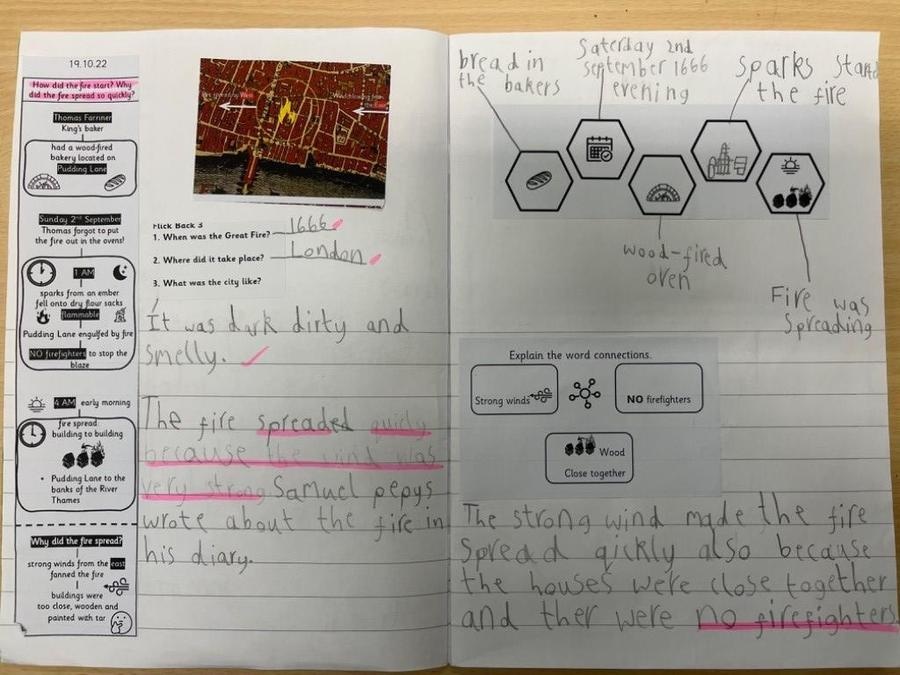 19.10.22
How did the fire start? Why
did the fire spread so quickly?
Thomas Farriner
King's baker
had a wood-fired
bakery located on
Pudding Lane
Sunday 2nd September
Thomas forgot to put
the fire out in the ovens!
1 AM
sparks from an ember
fell onto dry flour sacks
flammable
Pudding Lane engulfed by fire
NO firefighters to stop the
blaze
4 AM early morning
fire spread:
building to building
• Pudding Lane to the
banks of the River
Thames
Why did the fire spread?
strong winds from the east
fanned the fire
buildings were
too close, wooden and
painted with tar
Flick Back 3
1. When was the Great Fire? 1666
2. Where did it take place? London
3. What was the city like?
It was dark dirty and
smelly.
The fire spreaded quicly
because the wind was
very strong Samuel pepys
wrote about the fire in
his diary.
bread in
the bakers
Saterday 2nd
september 1666
evening
Sparks start
the fire
wood-fired
oven
Fire was
spreading
Explain the word connections.
Strong winds
NO firefighters
Wood
Close together
The strong wind made the fire
spread qickly also because
the houses were close together
and ther were no firefighters